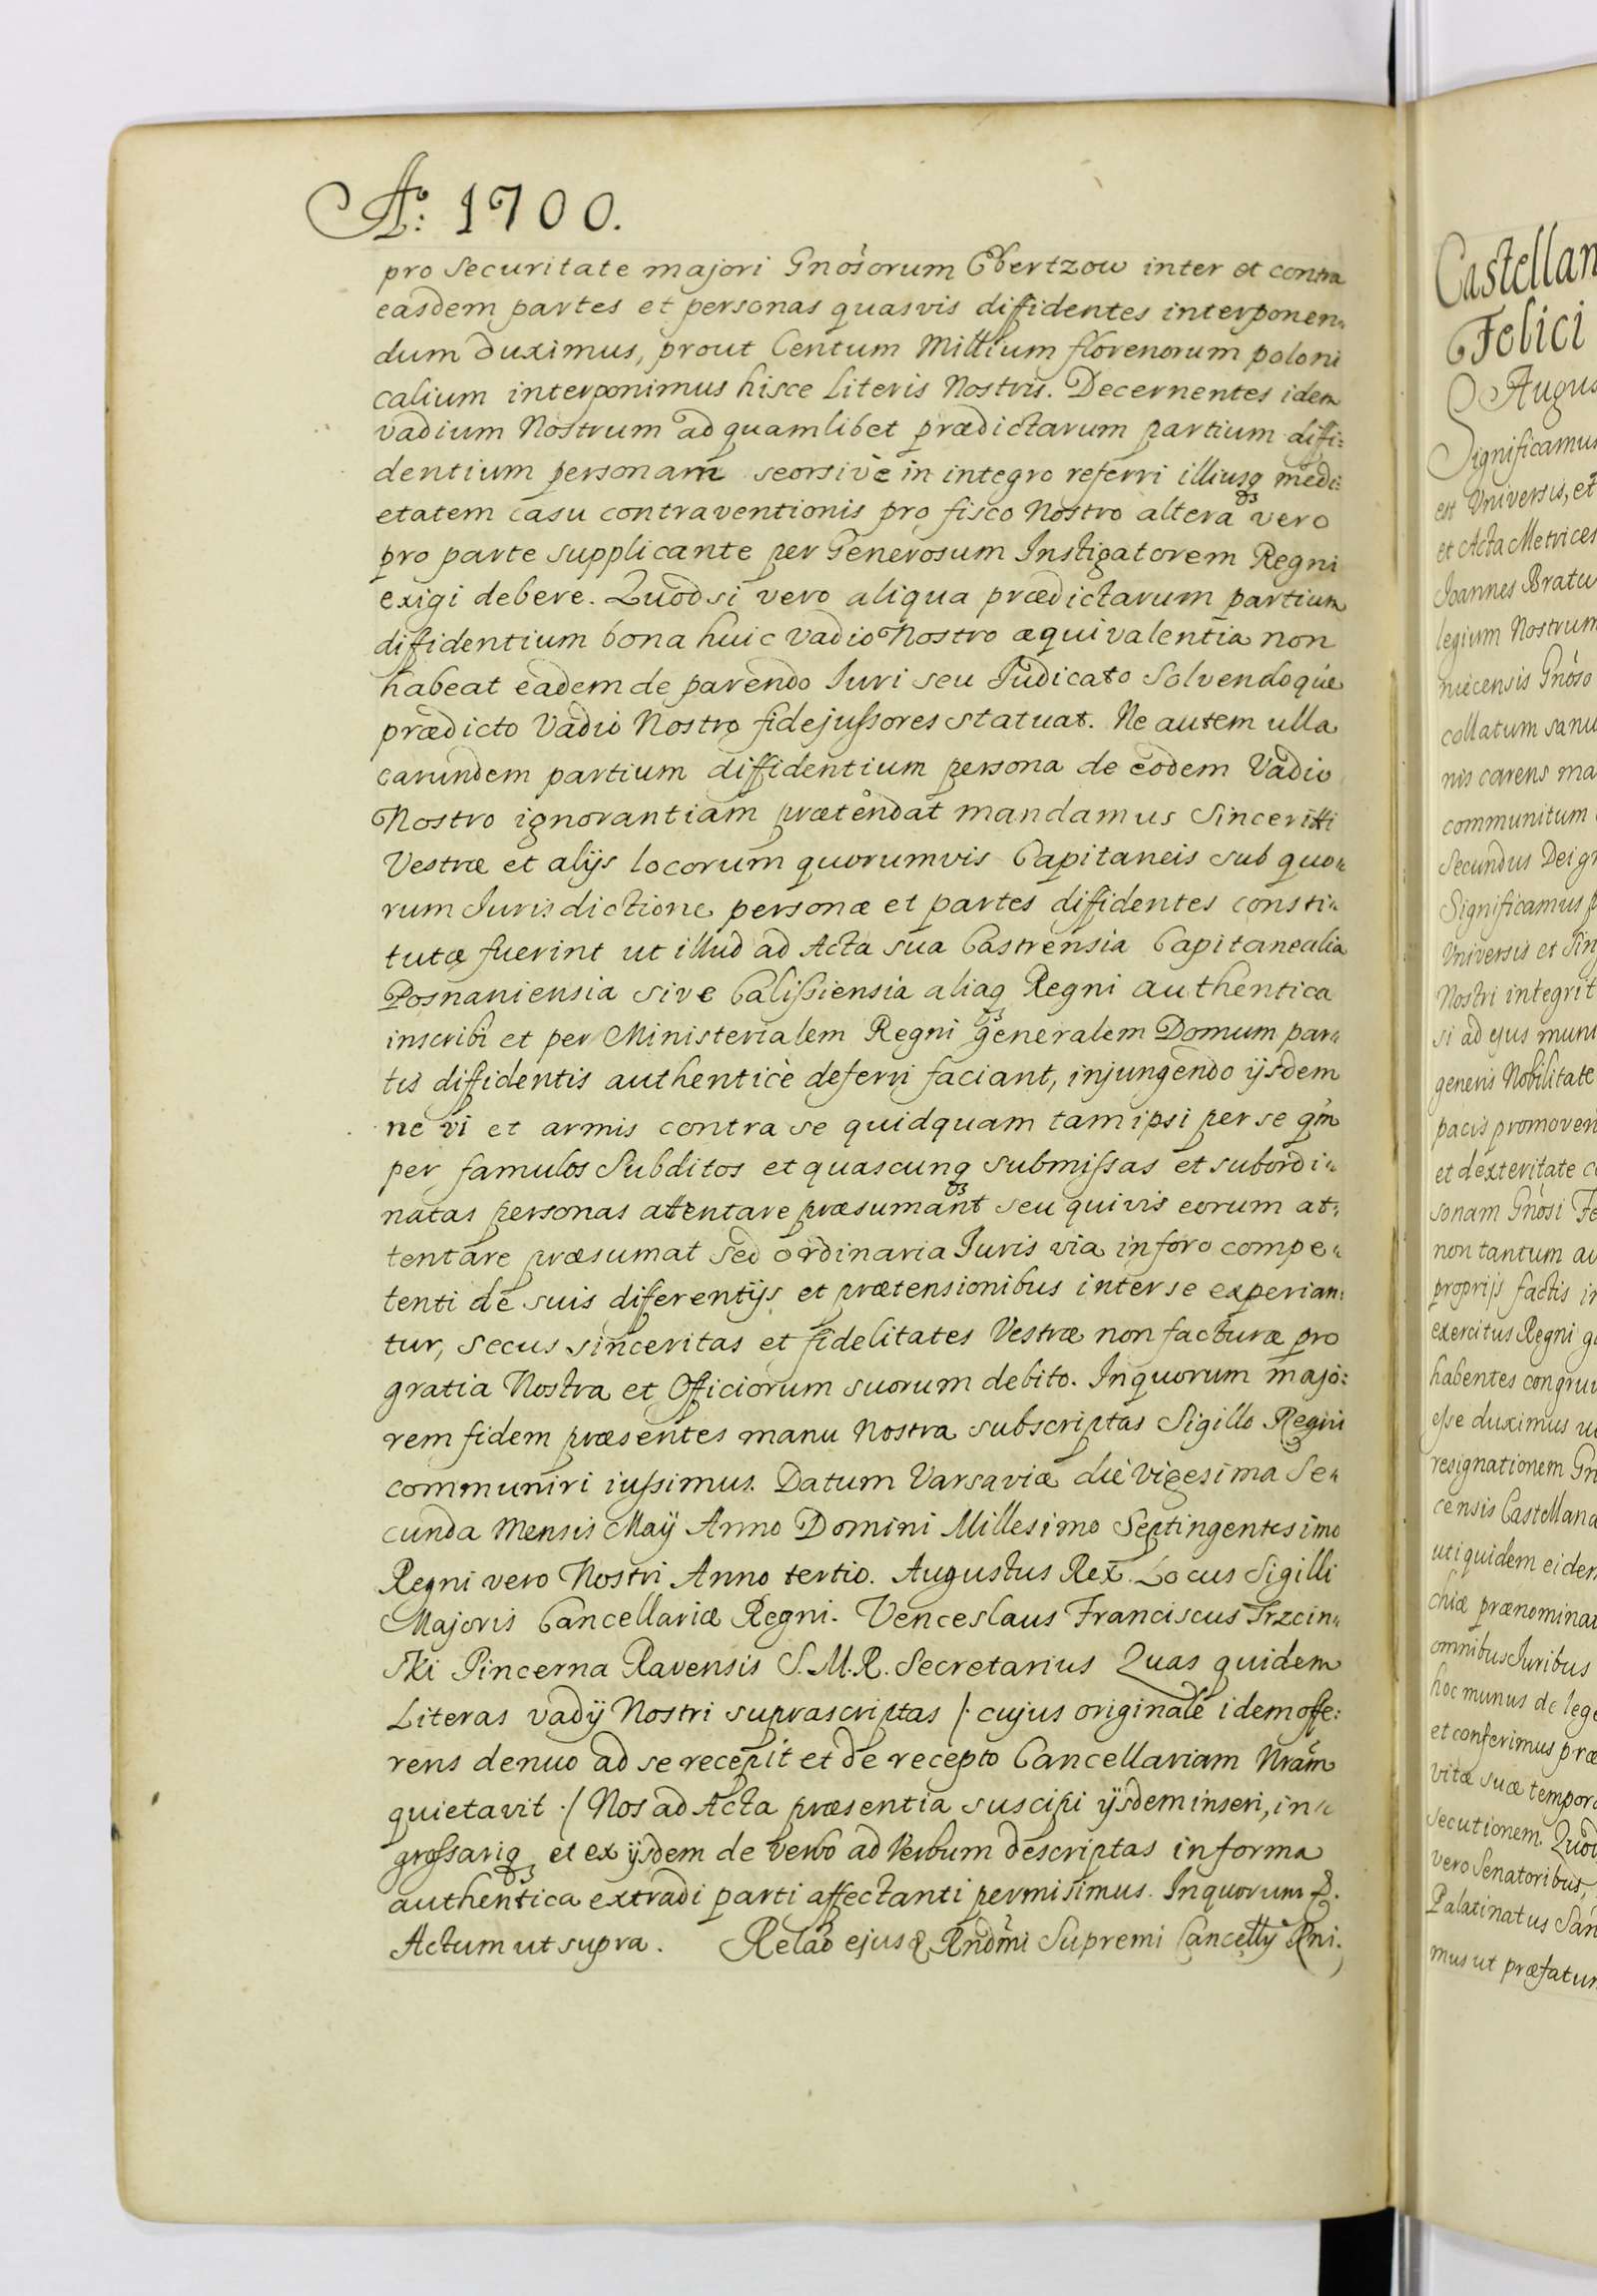 Aº: 1700.
pro Securitate majori Gnosorum Ebertzow inter et contra
easdem partes et personas quasvis diffidentes interponen„
dum duximus, prout Centum Millium florenorum poloni
calium interponimus hisce Literis Nostris. Decernentes idem
vadium Nostrum ad quamlibet prædictarum partium diffi:
dentium personam seorsivè in integro referri illiusq₃ medi:
etatem casu contraventionis pro fisco Nostro altera vero
pro parte supplicante per Generosum Instigatorem Regni
exigi debere. Quodsi vero aliqua prædictarum partium
diffidentium bona huic vadio Nostro æquivalentia non
habeat eadem de parendo Iuri seu Iudicato Solvendoque
prædicto Vadio Nostro fidejussores statuat. Ne autem ulla
earundem partium diffidentium persona de eodem Vadio
Nostro ignorantiam prætendat mandamus Sinceritti
Vestræ et alijs locorum quorumvis Capitaneis sub quo„
rum Jurisdictione personæ et partes diffidentes consti„
tutæ fuerint ut illud ad Acta sua Castrensia Capitanealia
Posnaniensia sive Calissiensia aliaq₃ Regni authentica
inscribi et per Ministerialem Regni generalem Domum par„
tis diffidentis authenticè deferri faciant, injungendo ijsdem
ne vi et armis contra se quidquam tam ipsi per se qm̃
per famulos Subditos et quascunq₃ submissas et subordi„
natas personas attentare præsumant seu quivis eorum at„
tentare præsumat sed ordinaria Iuris via in foro compe„
tenti de suis diferentijs et prætensionibus inter se experian:
tur, secus sinceritas et fidelitates Vestræ non facturæ pro
gratia Nostra et Officiorum suorum debito. In quorum majo:
rem fidem præsentes manu Nostra subscriptas Sigillo Regni
communiri iussimus. Datum Varsaviæ die vigesima Se„
cunda Mensis Maÿ Anno Domini Millesimo Septingentesimo
Regni vero Nostri Anno tertio. Augustus Rex. Locus Sigilli
Majoris Cancellariæ Regni. Venceslaus Franciscus Trzcin„
ski Pincerna Ravensis S.M.R. Secretarius Quas quidem
Literas vadÿ Nostri suprascriptas /: cujus originale idem offe:
rens denuo ad se recepit et de recepto Cancellariam Nram̃
quietavit ·/ Nos ad Acta præsentia suscipi ijsdem inseri, in„
grossariq₃ et ex ijsdem de verbo ad Verbum descriptas in forma
authentica extradi parti affectanti permisimus. In quorum &.
Actum ut supra. Relao ejus & Rndmi Supremi Cancellÿ Rni.
Castellan
Felici
Augus
Significamus
est Universis, et
et Acta Metrices
Joannes Bratu
legium Nostrum
niecensis Gnoso
collatum sanu
nis carens ma
communitum
Secundus Dei gr
Significamus p
Universis et Sin
Nostri integrit
si ad ejus mun
generis Nobilitate
pacis promoven
et dexteritate c
sonam Gnosi Fe
non tantum au
proprijs factis in
exercitus Regni g
habentes congru
esse duximus u
resignationem Gn
censis Castellana
uti quidem eidem
chiæ prænomina
omnibus Iuribus
hoc munus de lege
et conferimus præ
vitæ suæ tempora
secutionem. Quod
vero Senatoribus,
Palatinatus San
mus ut præfatum